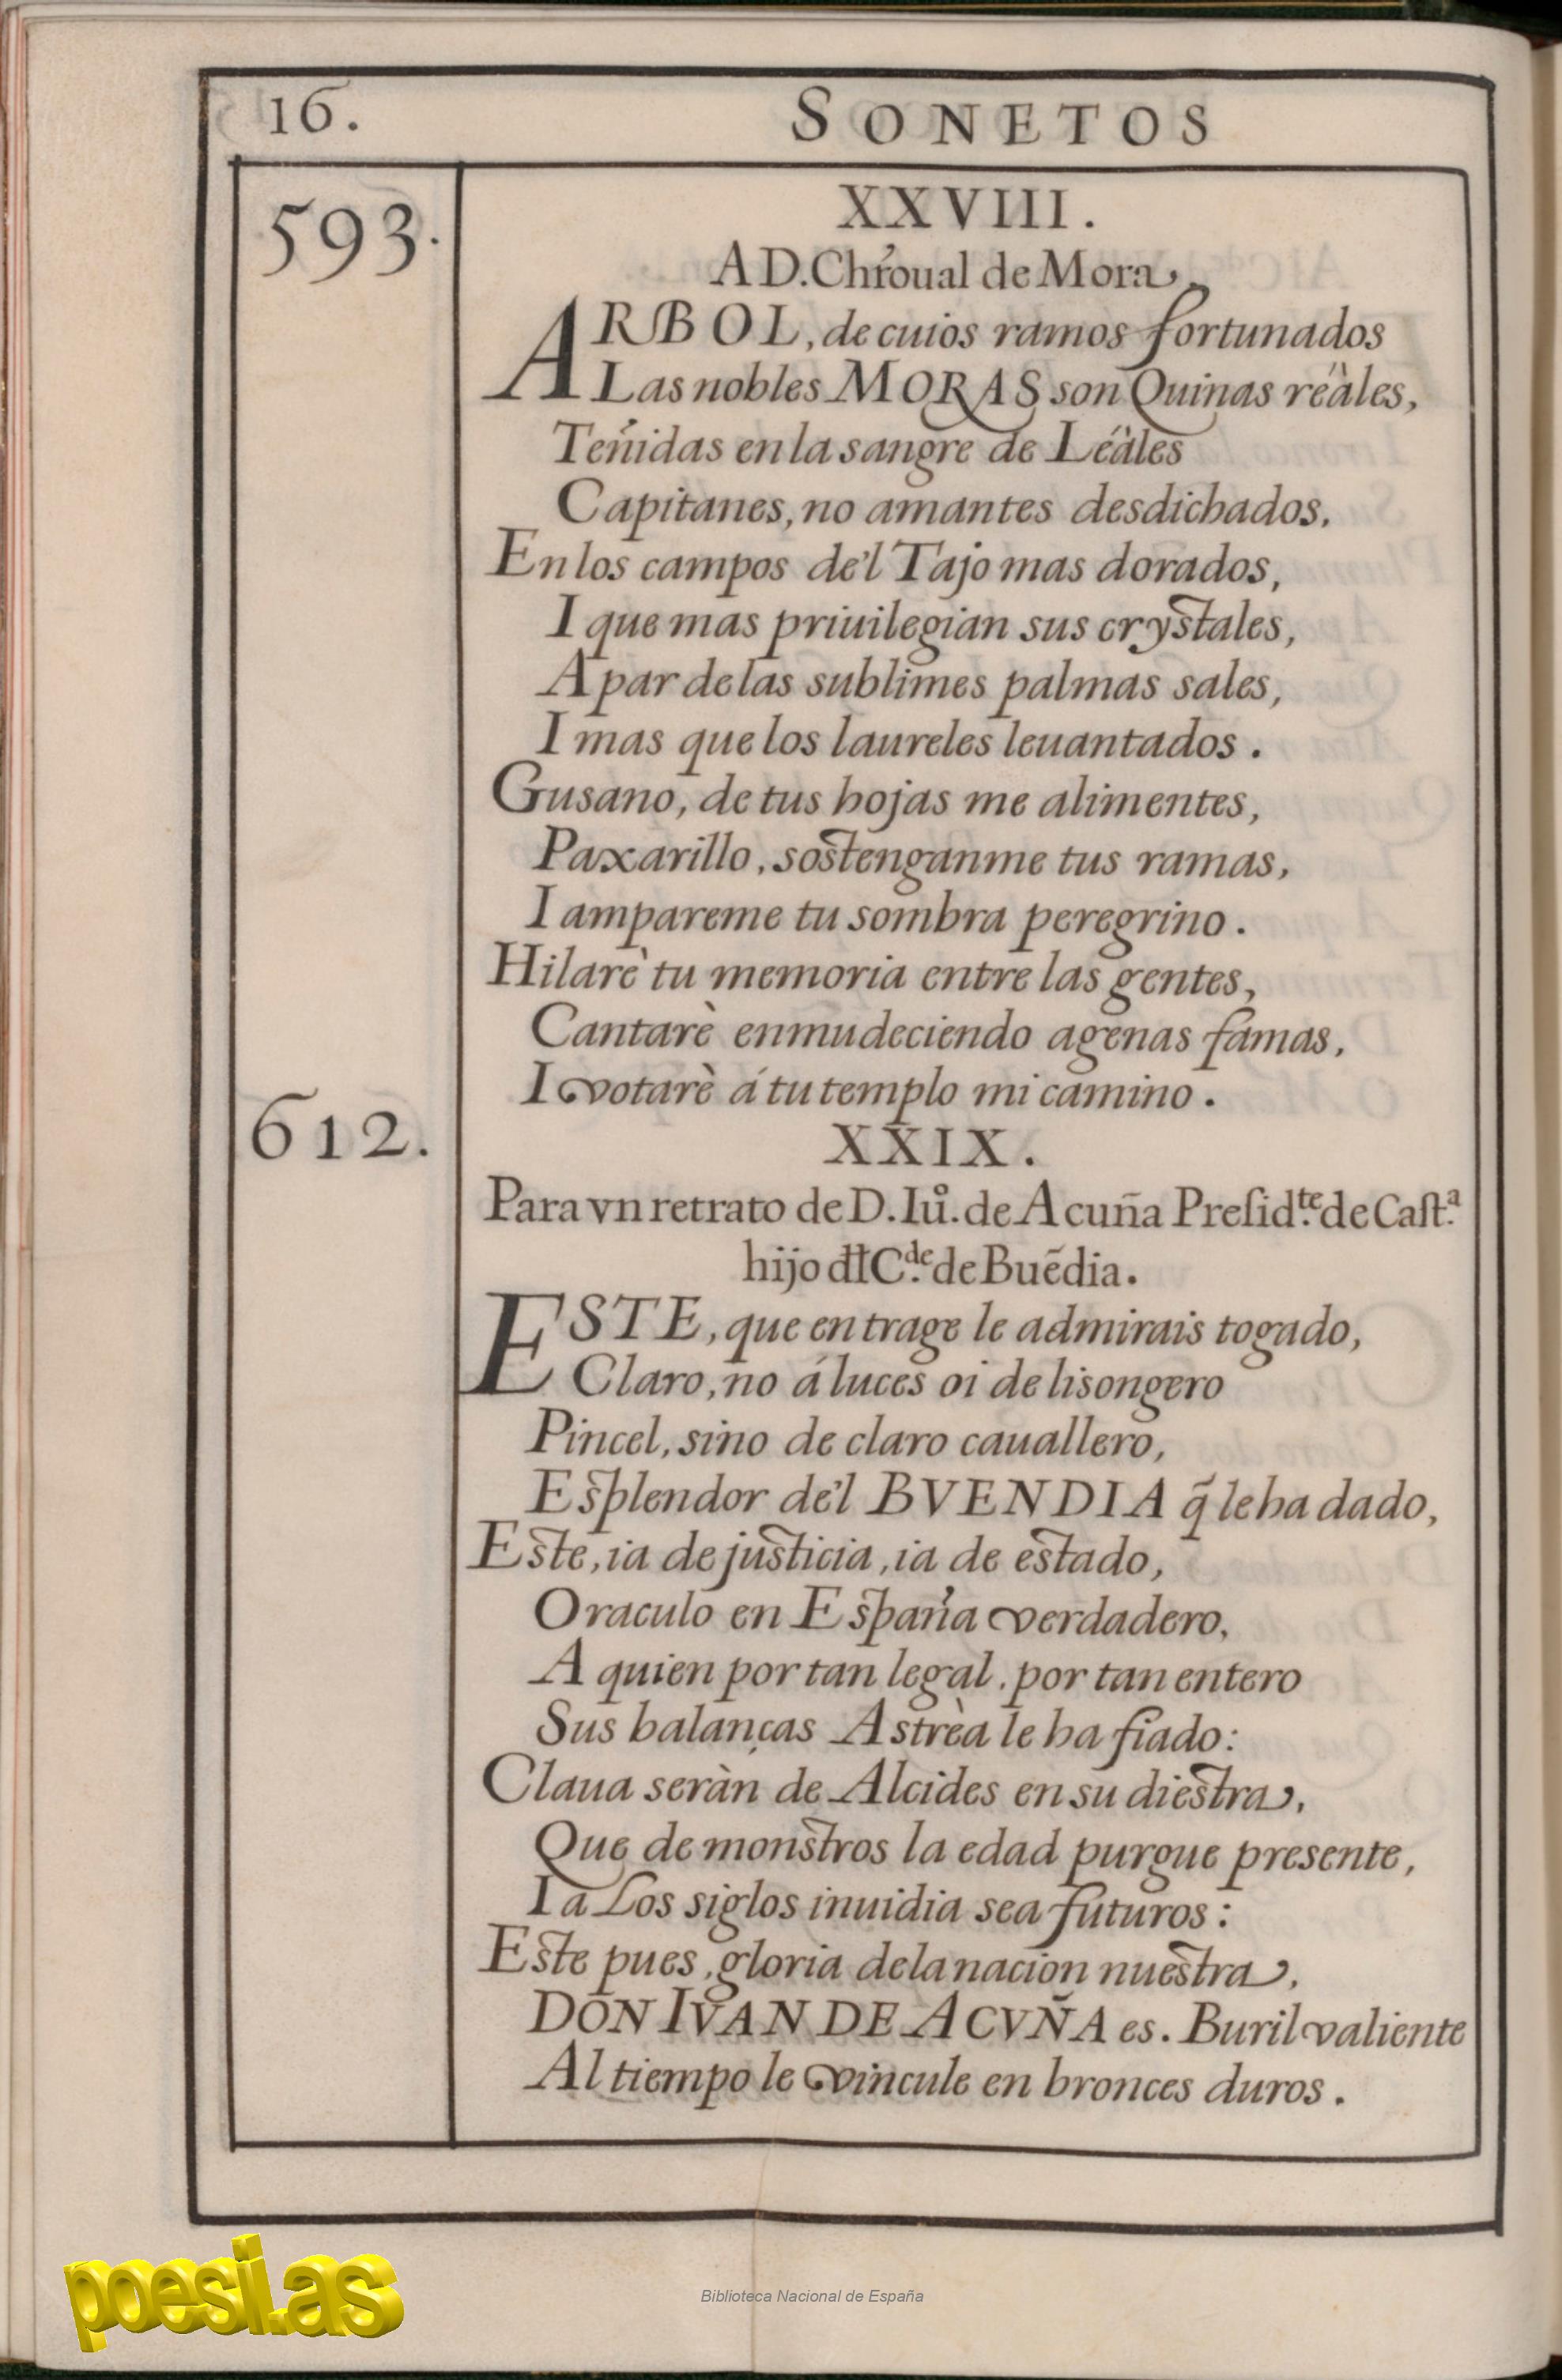 16.
SONETOS
593.
XXVIII.
A D. Chr̃oual de Mora.
ARBOL, de cuios ramos fortunados
Las nobles MORAS son Quinas réàles,
Teñidas en la sangre de Léàles
Capitanes, no amantes desdichados.
En los campos de'l Tajo mas dorados,
I que mas priuilegian sus crystales,
A par de las sublimes palmas sales,
I mas que los laureles leuantados.
Gusano, de tus hojas me alimentes,
Paxarillo, sostenganme tus ramas,
I ampareme tu sombra peregrino.
Hilarè tu memoria entre las gentes,
Cantarè enmudeciendo agenas famas,
I votarè á tu templo mi camino.
612.
XXIX.
Para vn retrato de D. Iu.º de Acuña Presid.te de Cast.a
hijo dłł C.de de Buẽdia.
ESTE, que en trage le admirais togado,
Claro, no á luces oi de lisongero
Pincel, sino de claro cauallero,
Esplendor de'l BVENDIA q̃ le ha dado,
Este, ia de justicia, ia de estado,
Oraculo en España verdadero,
A quien por tan legal, por tan entero
Sus balanças Astrèa le ha fiado:
Claua seràn de Alcides en su diestra,
Que de monstros la edad purgue presente,
I a Los siglos inuidia sea futuros:
Este pues, gloria de la nacion nuestra,
DON IVAN DE ACVÑA es. Buril valiente
Al tiempo le vincule en bronces duros.
poesi.as
Biblioteca Nacional de España